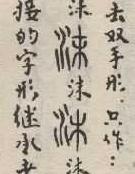 去双手形，只作：
沬沬沬沬沬
接的字形继承